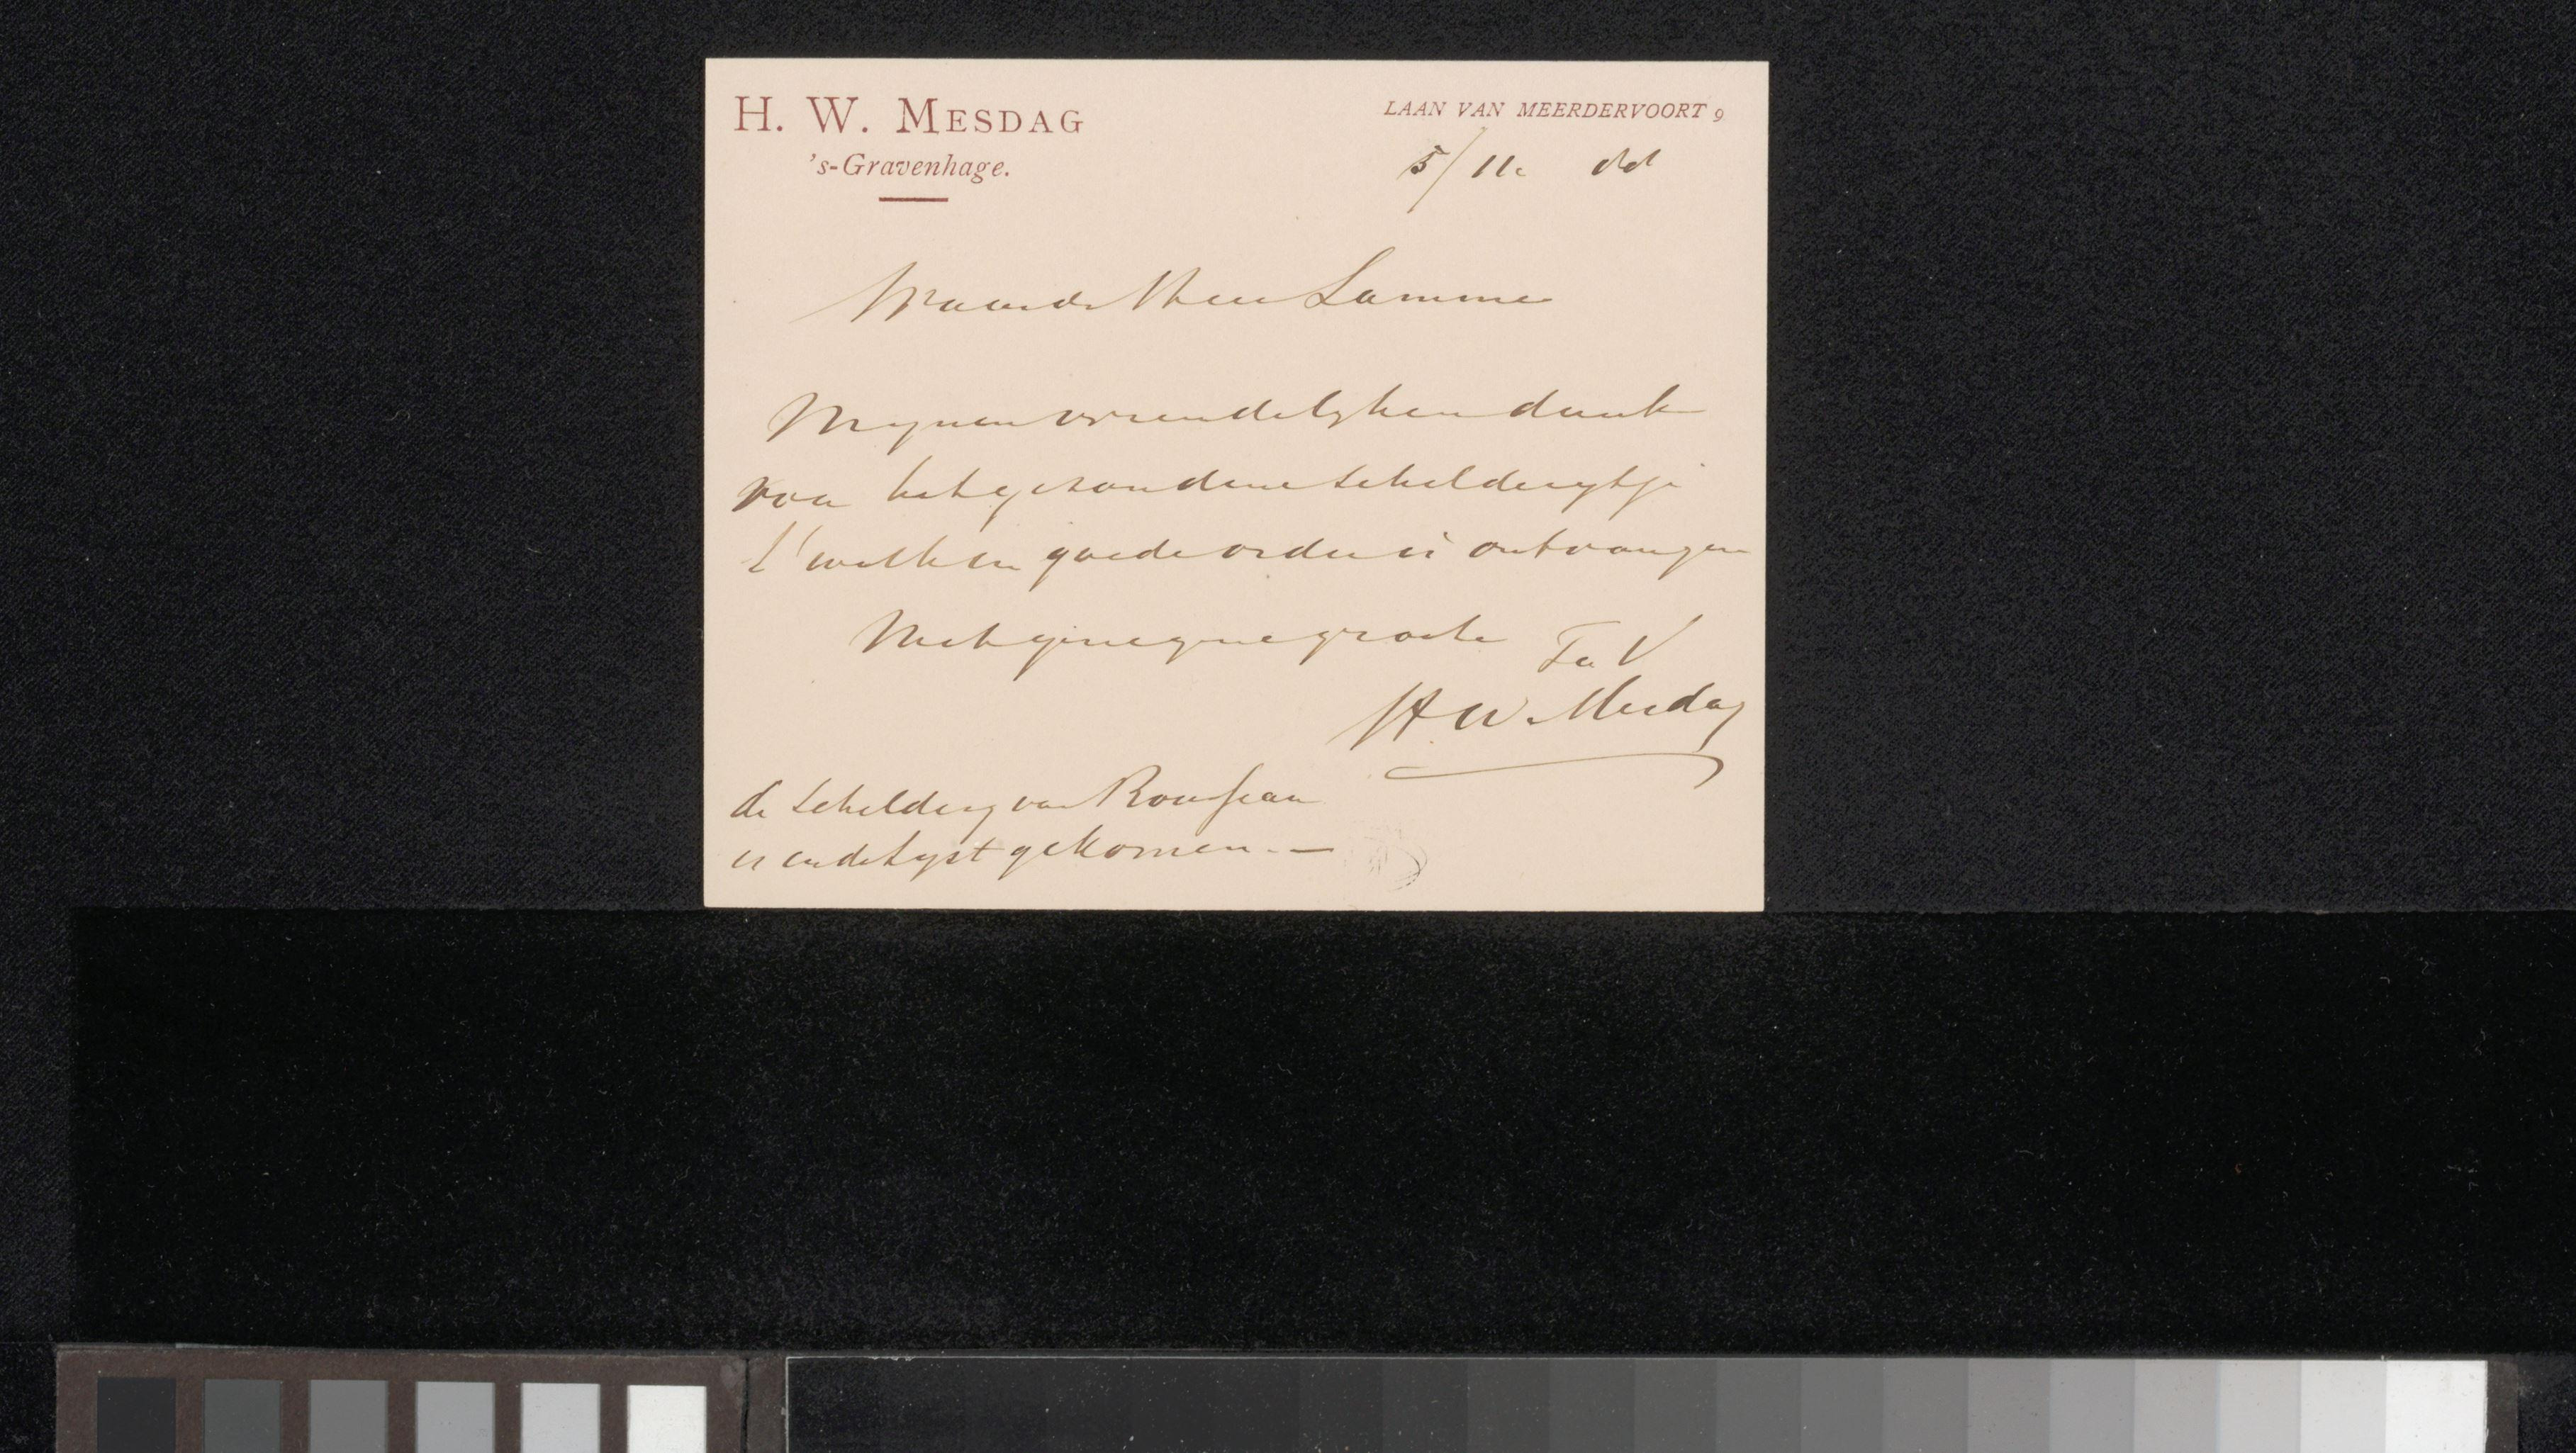 H. W. MESDAG
LAAN VAN MEERDERVOORT 9
's-Gravenhage.
5/11.
Waarde Heer Lamme
Mynen vriendelyken dank
voor het gezondene schilderytje
t'welk in goede orde is ontvangen
Met genegene groete
TaV
HW. Mesdag
de schildery van Rousseau
is in de lyst gekomen. —